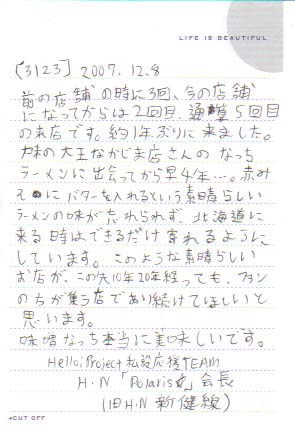 LIFE IS BEAUTIFUL
[3123] 2007.12.8
前の店舗の時に3回、今の店舗
になってからは2回目、通算5回目
の来店です。約1年ぶりに来ました。
味の大王なかじま店さんのなっち
ラーメンに出会ってから早4年…。赤み
そにバターを入れるという素晴らしい
ラーメンの味が忘れられず、北海道に
来る時はできるだけ寄れるように
しています。このような素晴らしい
お店が、この先10年20年経っても、ファン
の方が集う店であり続けてほしいと
思います。
味噌なっち本当に美味しいです。
Hello!Project私設応援TEAM
H.N「Polaris☆」会長
(旧H.N 新健線)
◂CUT OFF